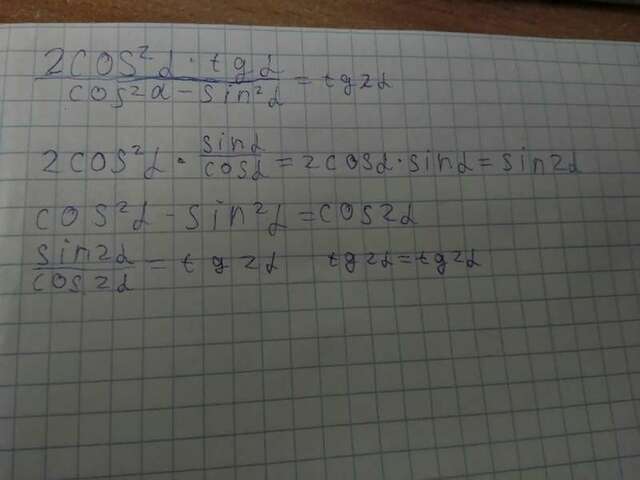 2cos²α · tgα / cos²α - sin²α = tg2α
2cos²α · sinα/cosα = 2cosα · sinα = sin2α
cos²α - sin²α = cos2α
sin2α/cos2α = tg2α tg2α = tg2α